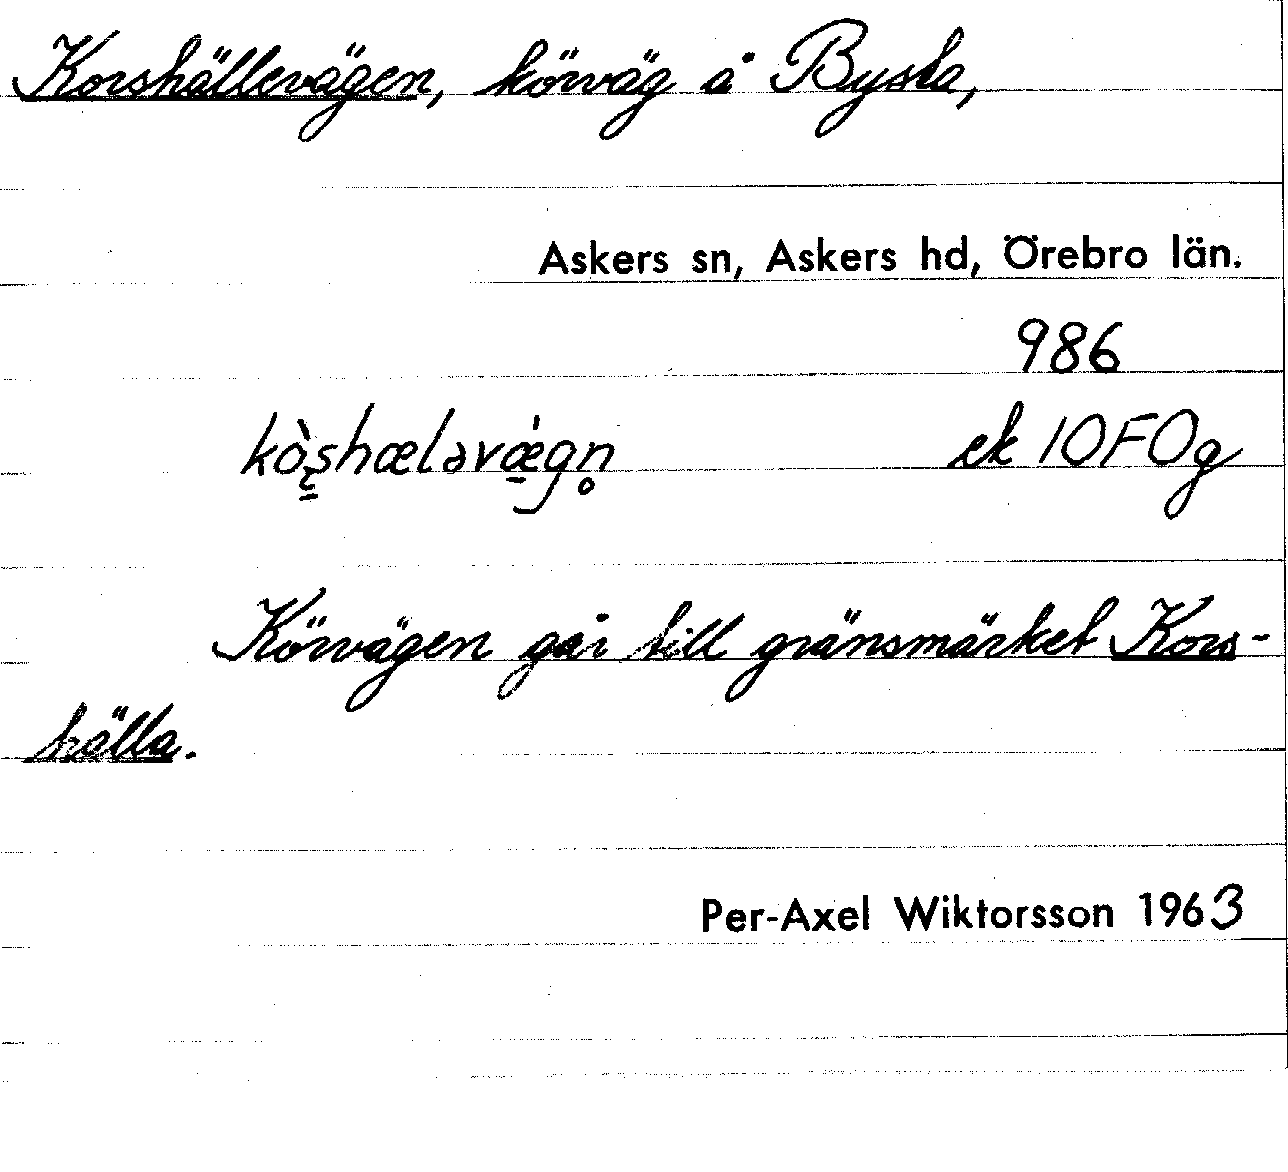 Korshällevägen, körväg å Bysta,
Askers sn, Askers hd, Örebro län.
986
kòʂhæləvǽgn̥ ek 10F0g
Körvägen går till gränsmärket Kors-
hälla.
Per-Axel Wiktorsson 1963